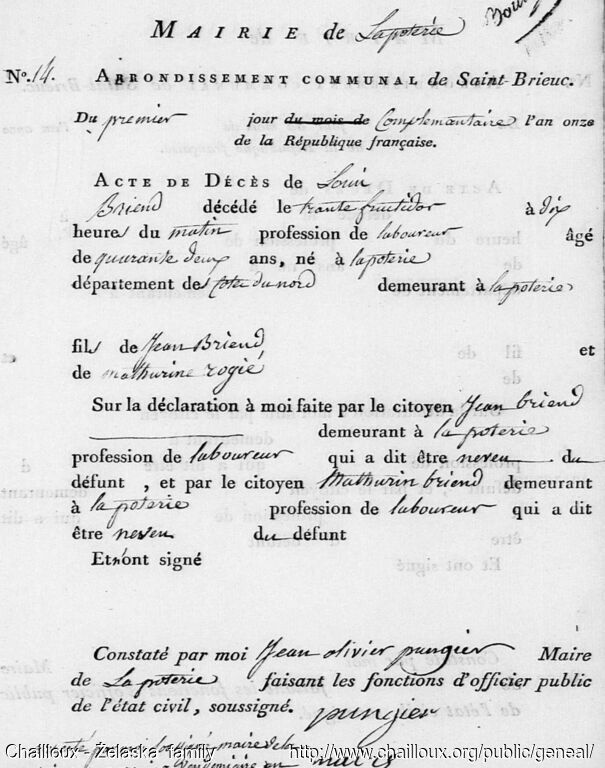 MAIRIE de Lapoterie
No. 14. ARRONDISSEMENT COMMUNAL de Saint-Brieuc.
Du premier jour du mois de Complémentaire l'an onze
de la République française.
ACTE DE DÉCÈS de Louis
Briend décédé le trante fructidor à dix
heures du matin profession de laboureur âgé
de quarante deux ans, né à lapoterie
département des Cotes du nord demeurant à lapoterie
fils de Jean Briend et
de mathurine rogié
Sur la déclaration à moi faite par le citoyen Jean briend
demeurant à la poterie
profession de laboureur qui a dit être neveu du
défunt , et par le citoyen Mathurin briend demeurant
à la poterie profession de laboureur qui a dit
être neveu du défunt
Et n'ont signé
Constaté par moi Jean olivier pungier Maire
de Lapoterie faisant les fonctions d'officier public
de l'état civil, soussigné. pungier
Chailloux - Zelaska family http://www.chailloux.org/public/geneal/
maire de la